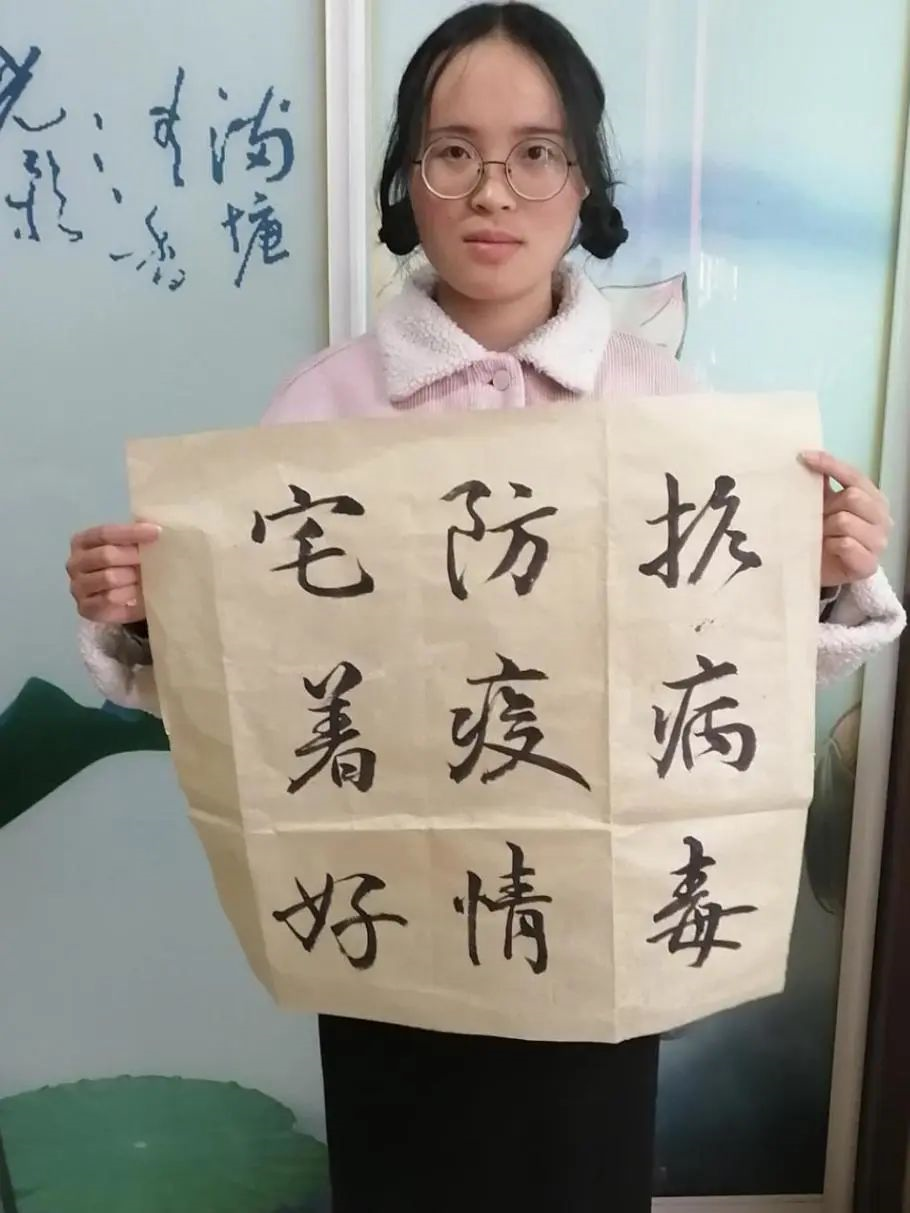 抗病毒
防疫情
宅着好
满塘